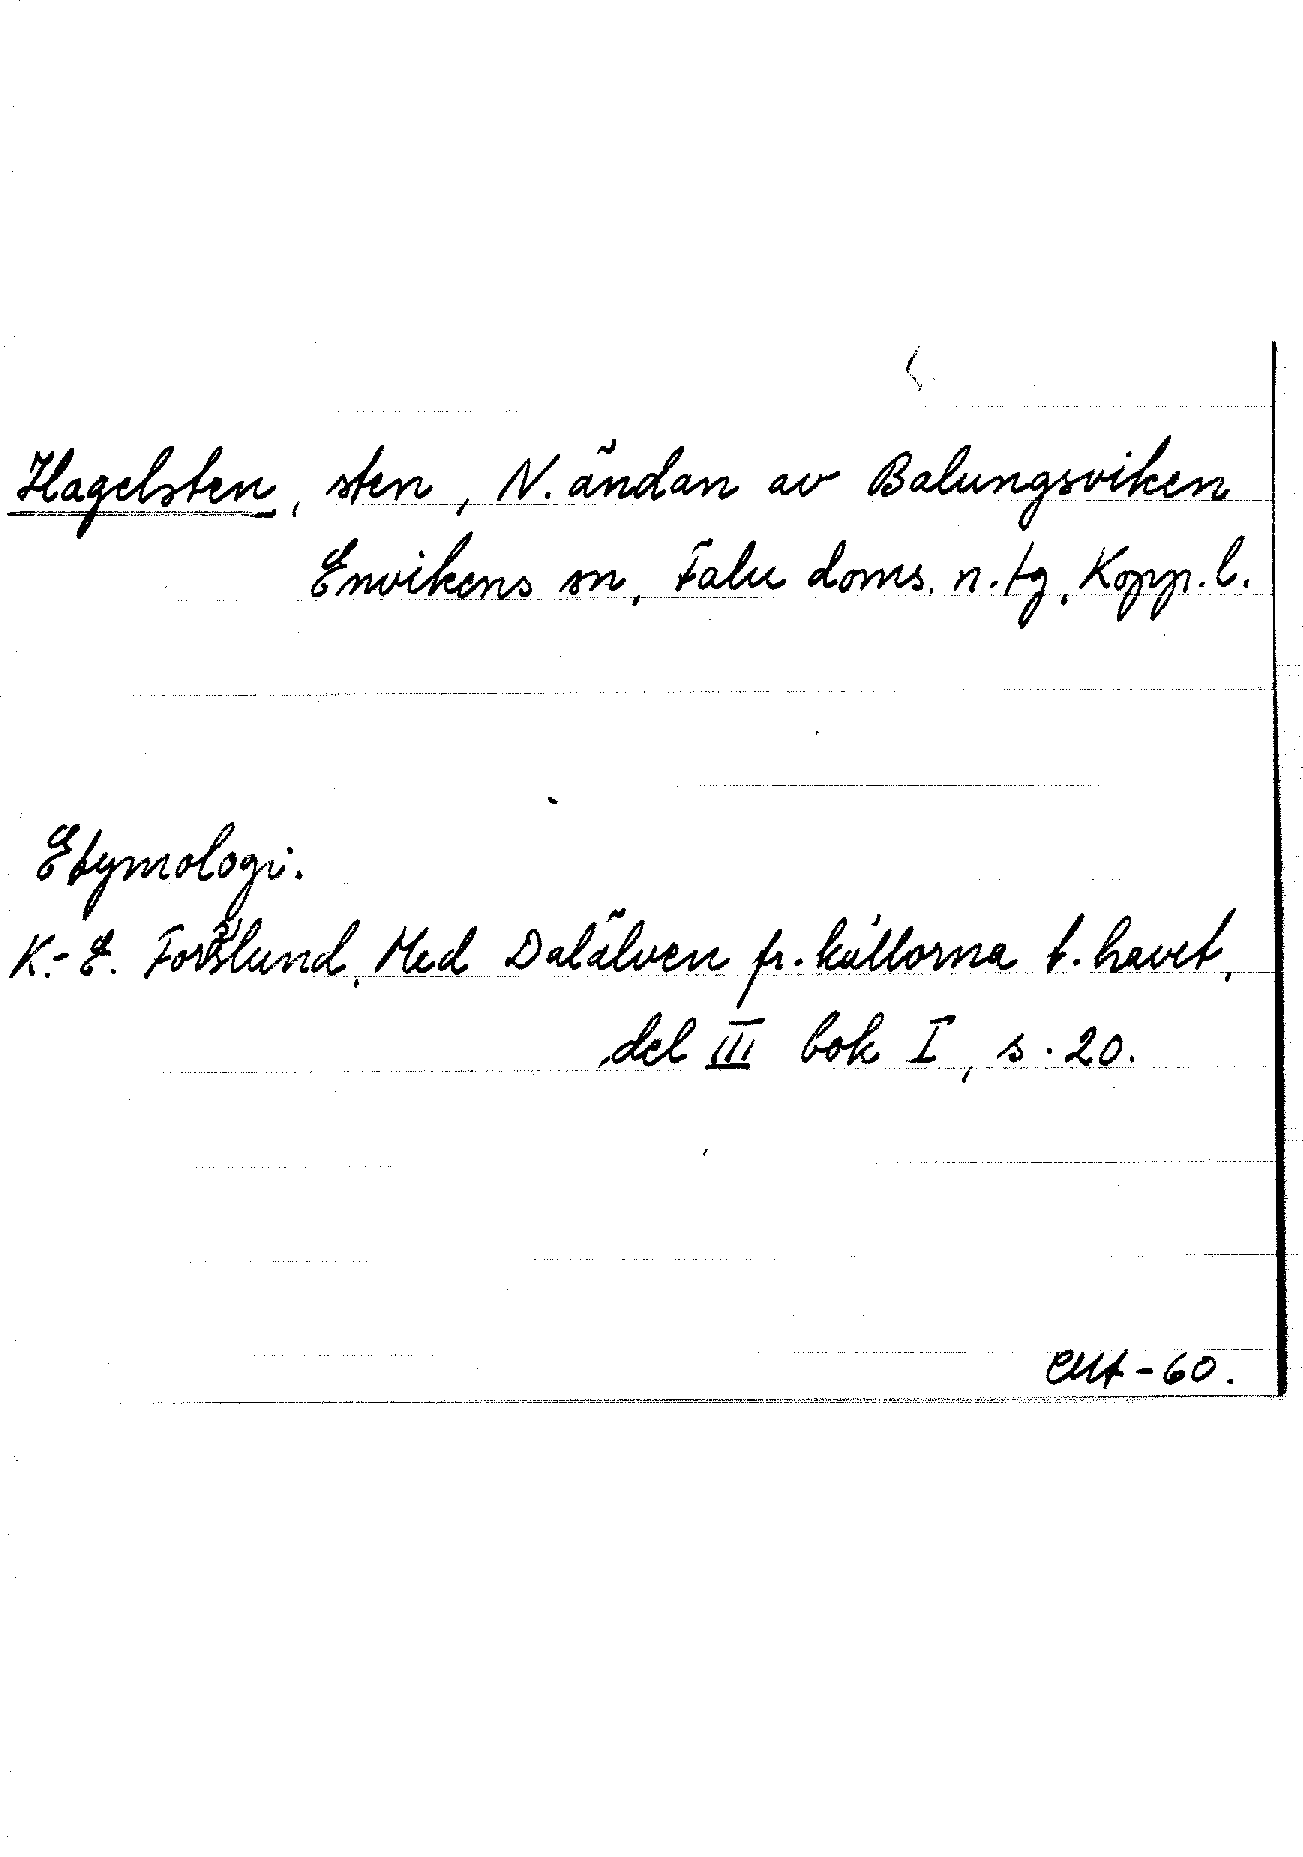 Hagelsten, sten, N. ändan av Balungsviken
Envikens sn, Falu doms. n. tg, Kopp. l.
Etymologi.
K.-E. Forsslund, Med Dalälven fr. källorna t. havet,
del III bok I, s. 20.